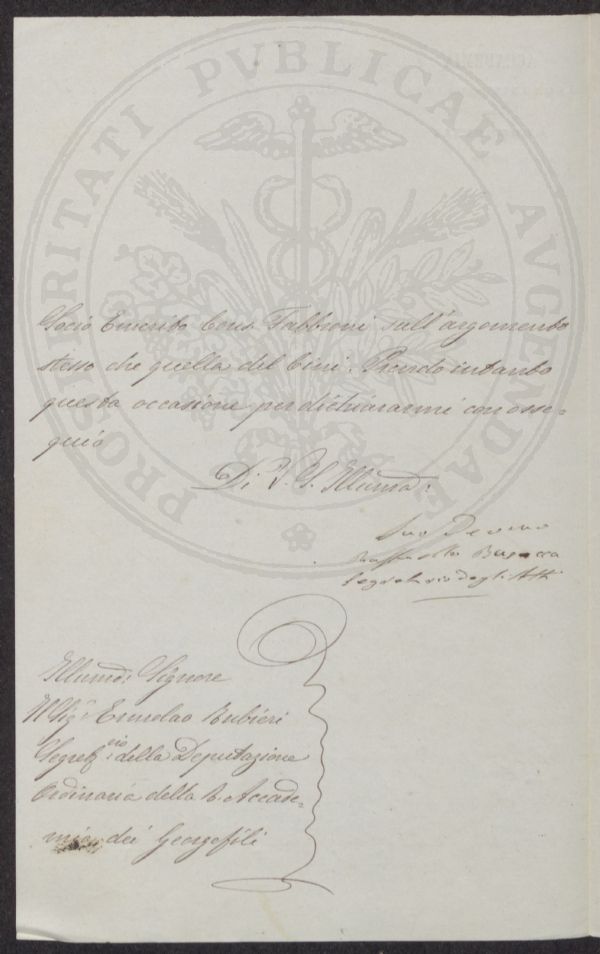 PROSPERITATI PVBLICAE AVGENDAE
Socio Emerito Cons. Fabbroni sull'argomento
stesso che quella del Bini. Prendo intanto
questa occasione per dichiararmi con osse=
quio
Di V. S. Illuma:
Suo Devmo
Raffaello Busacca
Segretario degli Atti
Illumo: Signore
Il Sigr: Ermolao Rubieri
Segretrio: della Deputazione
Ordinaria della R. Accade=
mia dei Georgofili